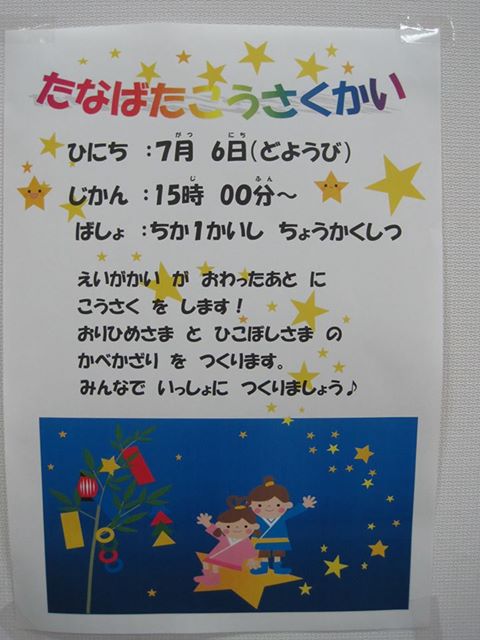 たなばたこうさくかい
ひにち：7月 6日(どようび)
じかん：15時 00分～
ばしょ：ちか1かいし ちょうかくしつ
えいがかい が おわったあと に
こうさく を します！
おりひめさま と ひこぼしさま の
かべかざり を つくります。
みんなで いっしょに つくりましょう♪